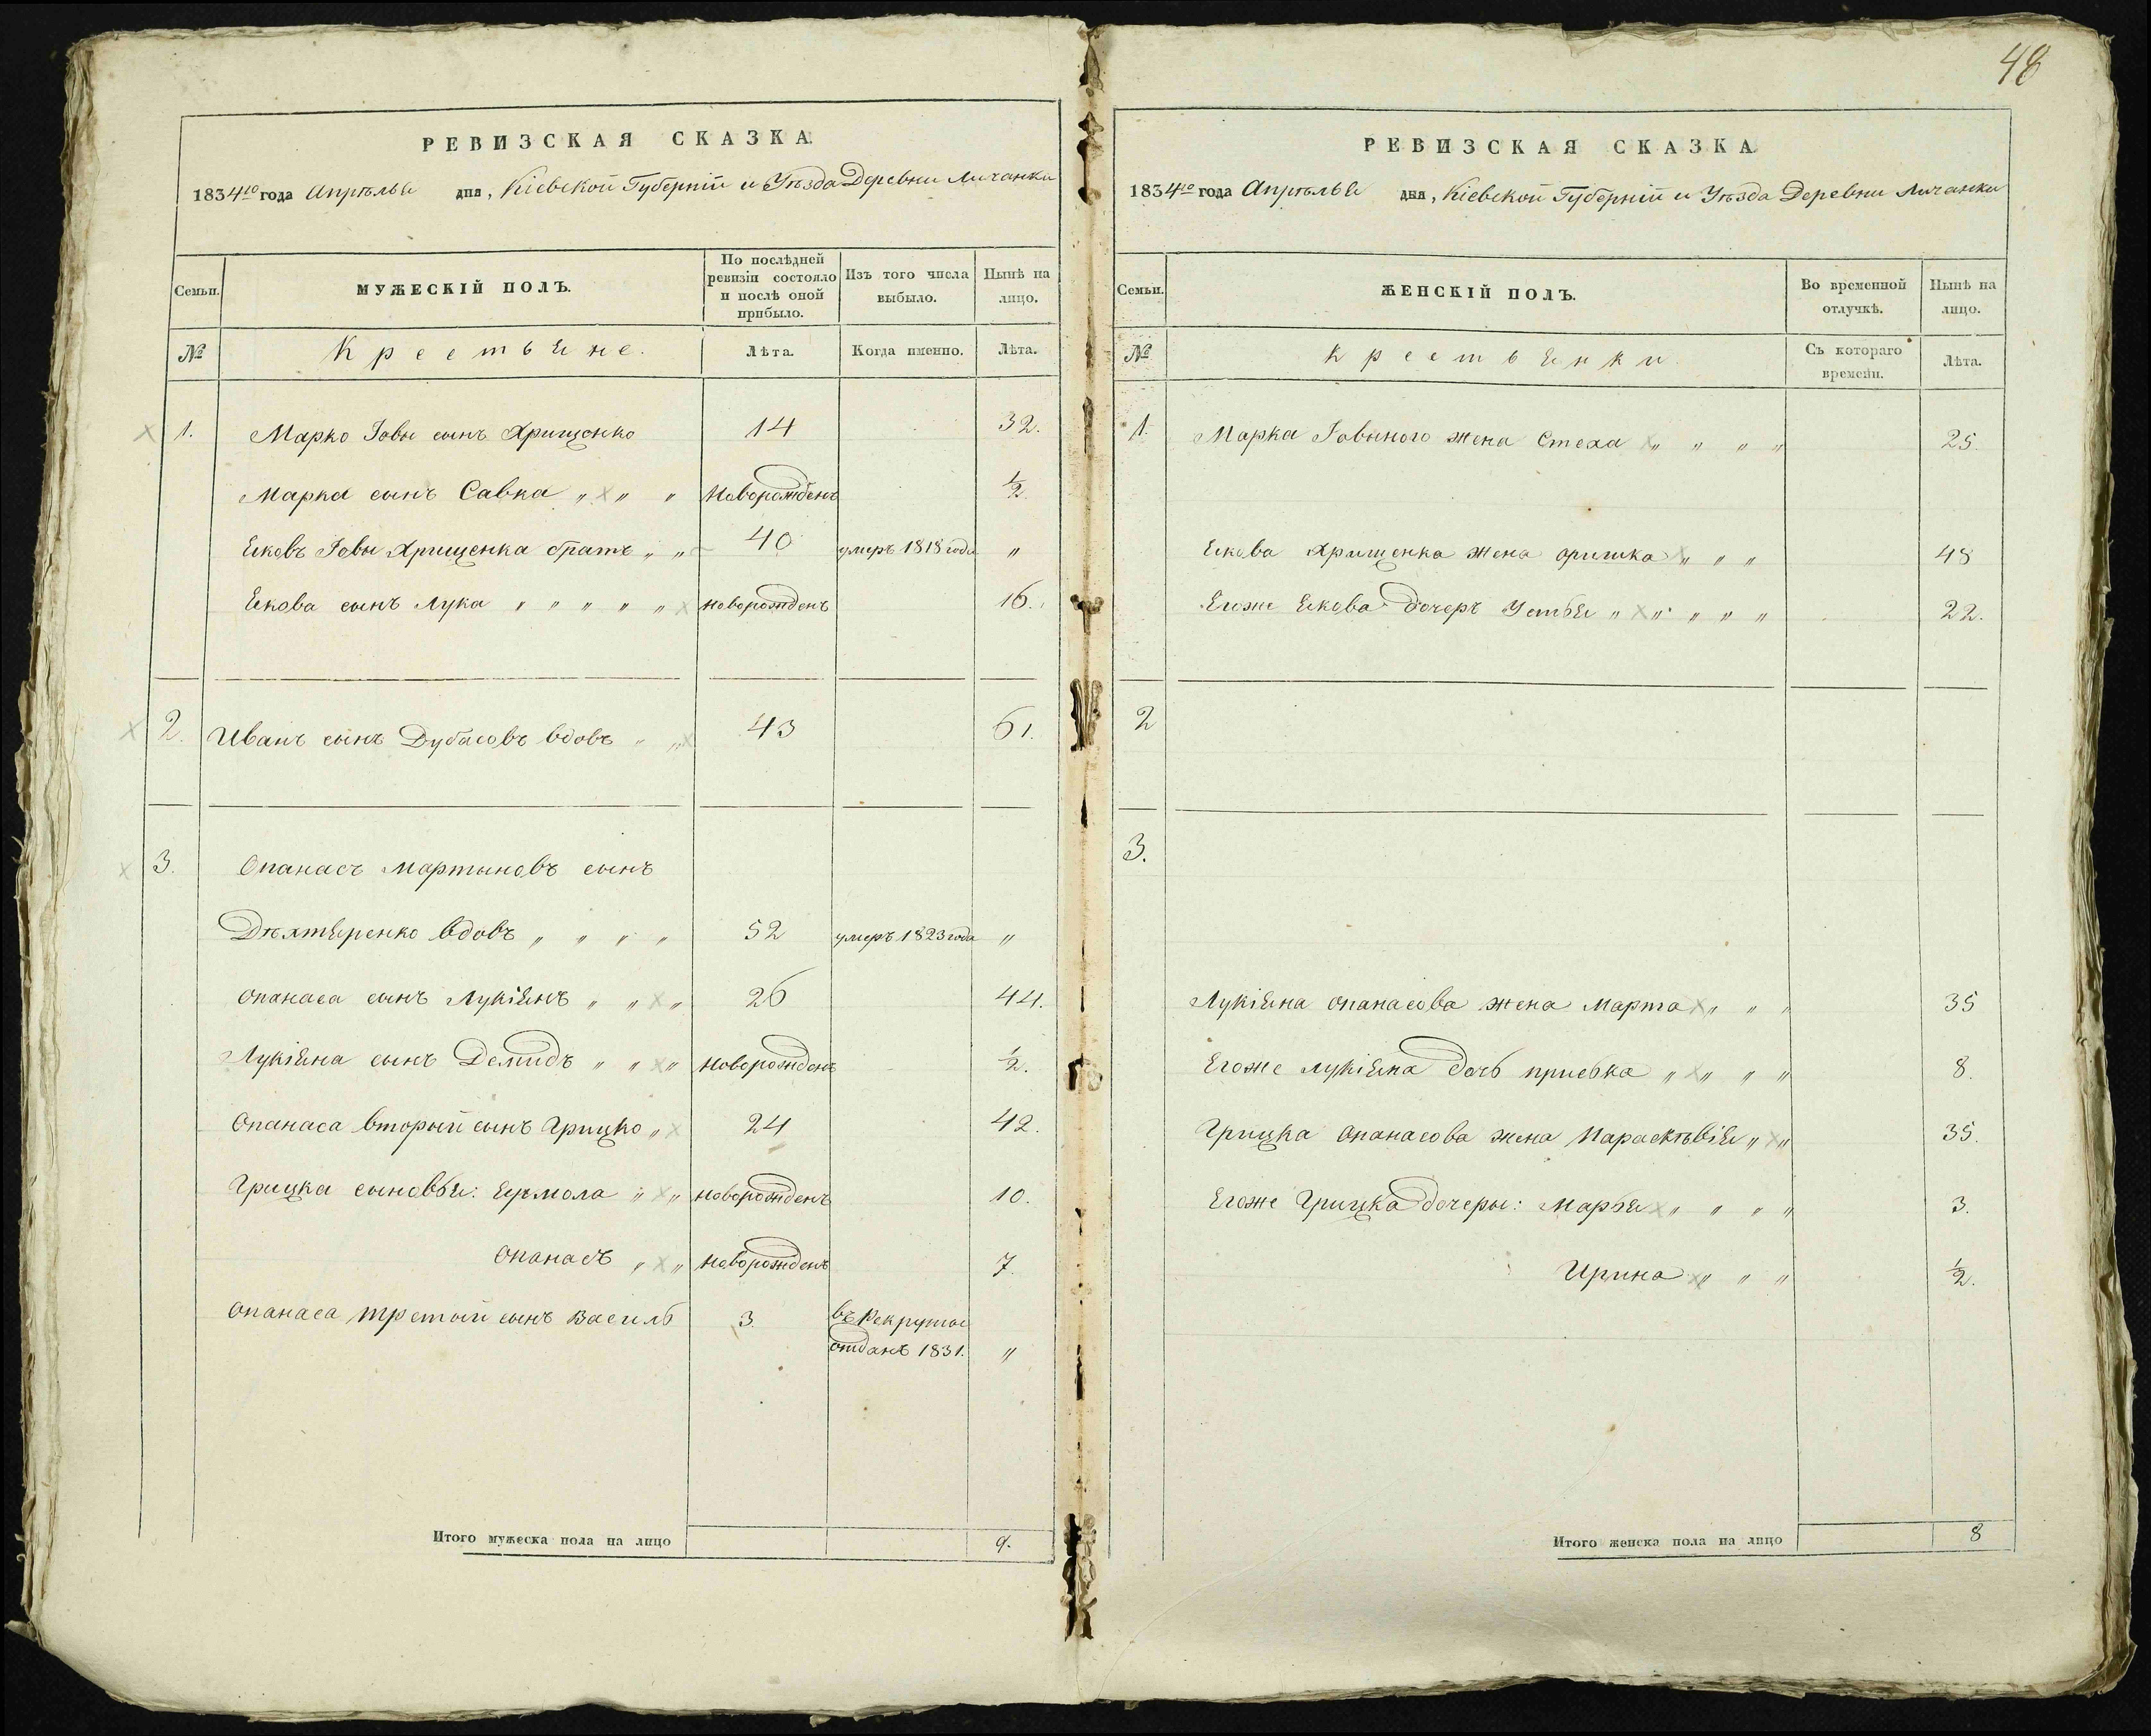 48
РЕВИЗСКАЯ СКАЗКА.
1834го года Апрѣля дня, Кіевской Губерніи и Уѣзда Деревни Личанки
Семьи.
МУЖЕСКІЙ ПОЛЪ.
По послѣдней ревизіи состояло и послѣ оной прибыло.
Изъ того числа выбыло.
Нынѣ на лицо.
№ Крестьяне. Лѣта. Когда именно. Лѣта.
1. Марко Іовы сынъ Хрищенко 14 32.
Марка сынъ Савка „ „ „ новорожденъ ½
Яковъ Іовы Хрищенка братъ „ „ 40 умеръ 1818 года „
Якова сынъ Лука „ „ „ „ „ новорожденъ 16.
2. Иванъ сынъ Дубасовъ вдовъ „ „ 43 61.
3. Опанасъ Мартыновъ сынъ
Дѣхтяренко вдовъ „ „ „ „ 52 умеръ 1823 года „
Опанаса сынъ Лукіянъ „ „ „ 26 44.
Лукіяна сынъ Демидъ „ „ „ новорожденъ ½.
Опанаса вторый сынъ Грицко „ 24 42.
Грицка сыновья: Ярмола „ „ новорожденъ 10.
Опанасъ „ „ новорожденъ 7.
Опанаса третый сынъ Василь 3 въ Рекруты
отданъ 1831. „
Итого мужеска пола на лицо 9.
РЕВИЗСКАЯ СКАЗКА.
1834го года Апрѣля дня, Кіевской Губерніи и Уѣзда Деревни Личанки
Семьи.
ЖЕНСКІЙ ПОЛЪ.
Во временной отлучкѣ.
Нынѣ на лицо.
№ Крестьянки Съ котораго времени. Лѣта.
1. Марка Іовиного жена Стеха „ „ „ „ 25.
Якова Хрищенка жена Оришка „ „ „ 48
Егоже Якова дочеръ Устья „ „ „ „ „ 22.
2
3.
Лукіяна Опанасова жена Марта „ „ „ 35
Егоже Лукіяна дочь Приська „ „ „ „ 8.
Грицка Опанасова жена Параскѣвія „ „ 35.
Егоже Грицка дочеры: Марья „ „ „ „ 3.
Ирина „ „ „ ½.
Итого женска пола на лицо 8